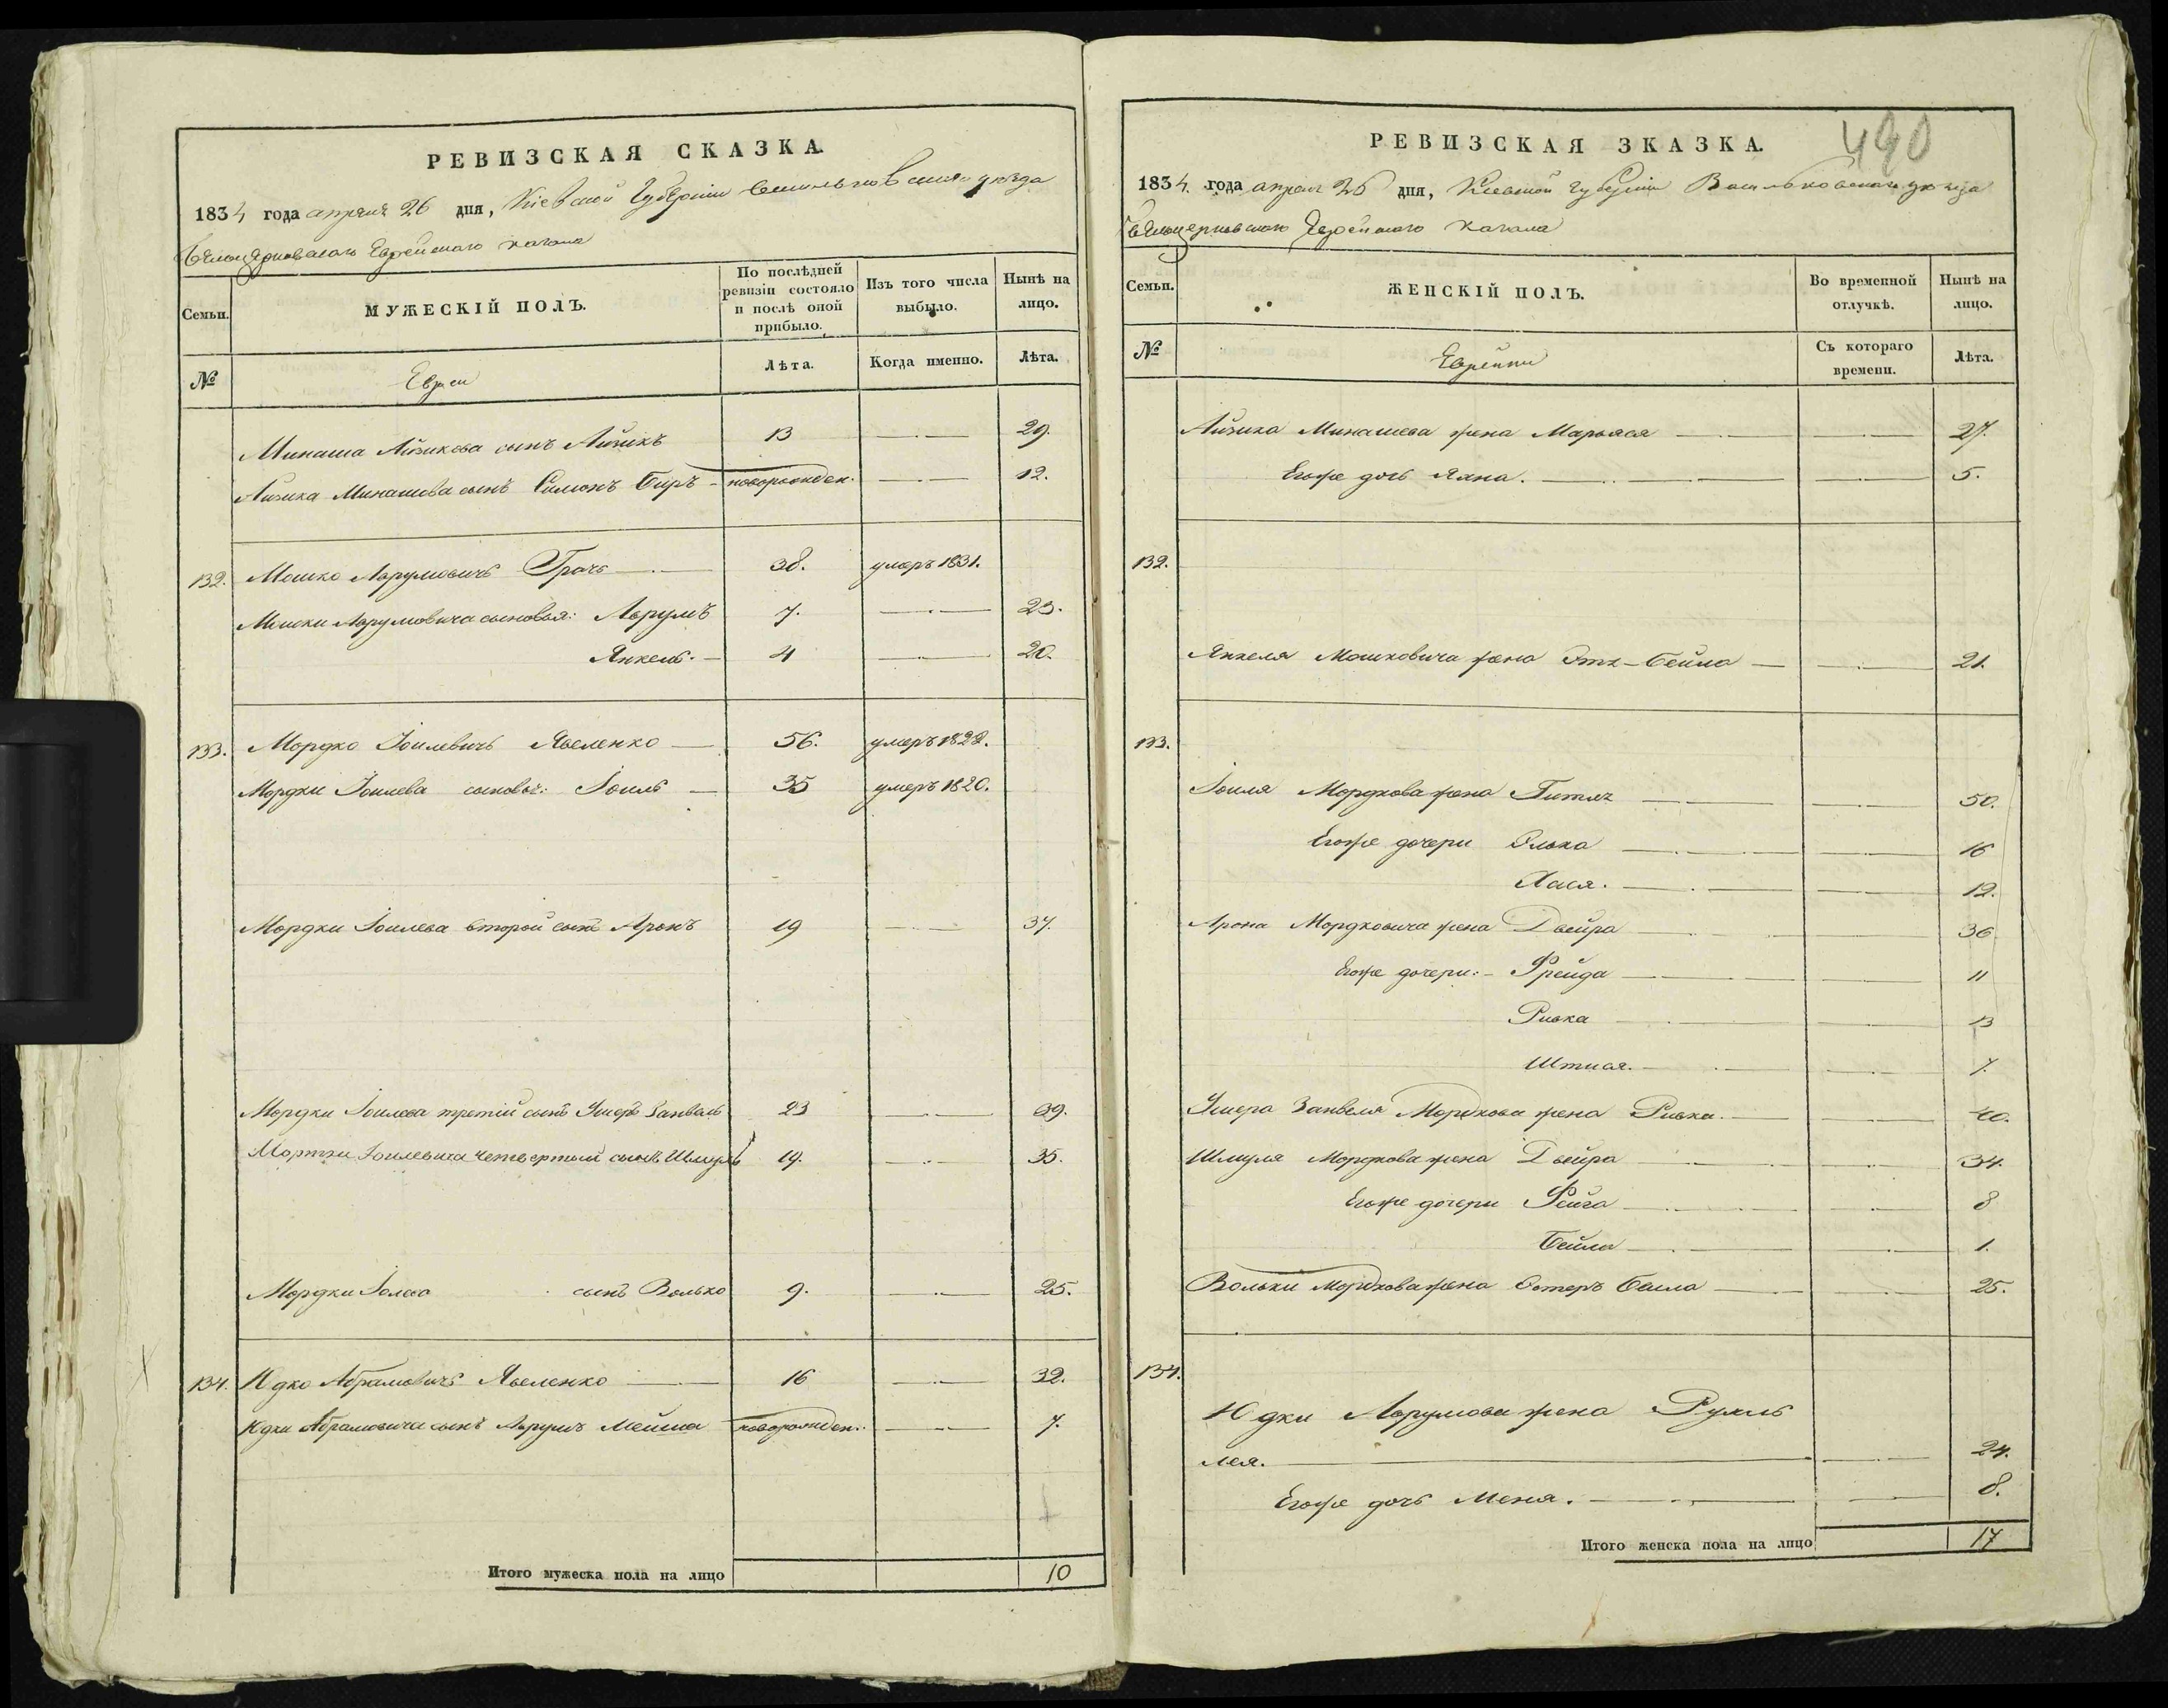 РЕВИЗСКАЯ СКАЗКА.
1834 года апреля 26 дня, Кіевской Губерніи Васильковскаго уѣзда
Бѣлоцерковскаго Еврейскаго кагала
Семьи.
МУЖЕСКІЙ ПОЛЪ.
По послѣдней ревизіи состояло и послѣ оной прибыло.
Изъ того числа выбыло.
Нынѣ на лицо.
№
Евреи
Лѣта.
Когда именно.
Лѣта.
Минаша Айзикова сынъ Айзикъ 13 29.
Айзика Минашова сынъ Симонъ Беръ новорожден. 12.
132. Мошко Аврумовичъ Грачъ 38. умеръ 1831.
Мошки Аврумовича сыновья: Аврумъ 7. 23.
Янкель. 4 20.
133. Мордко Іоилевичъ Явеленко 56. умеръ 1822.
Мордки Іоилева сыновья: Іоиль 35 умеръ 1820.
Мордки Іоилева второй сынъ Аронъ 19 37.
Мордки Іоилева третій сынъ Умеръ Занвель 23 39.
Мортки Іоилевича четвертый сынъ Шмуль 19. 35.
Мордки Іолева сынъ Волько 9. 25.
134. Юдко Абрамовичъ Явеленко 16 32.
Юдки Абрамовича сынъ Аврумъ Мейша новорожден. 7.
Итого мужеска пола на лицо 10
490
РЕВИЗСКАЯ ЗКАЗКА.
1834 года апреля 26 дня, Кіевской губерніи Васильковскаго уѣзда
Бѣлоцерковскаго Еврейского кагала
Семьи.
ЖЕНСКІЙ ПОЛЪ.
Во временной отлучкѣ.
Нынѣ на лицо.
№
Еврейки
Съ котораго времени.
Лѣта.
Айзика Минашева жена Марьяся 27.
Егоже дочь Яхна. 5.
132.
Янкеля Мошковича жена Этя-Бейла 21.
133.
Іоиля Мордкова жена Гитля 50.
Егоже дочери Элька 16
Хася. 12.
Арона Мордковича жена Двейра 36
Егоже дочери: Фрейда 11
Ривка 13
7.
Умера Занвеля Мордкова жена Ривка. 40.
Шмуля Мордкова жена Двейра 34.
Егоже дочери Фейга 8
Бейла 1.
Вольки Мордкова жена Эстеръ Бейла 25.
134.
Юдки Аврумова жена Рухль
лея. 24.
Егоже дочь Меня. 8.
Итого женска пола на лицо 17